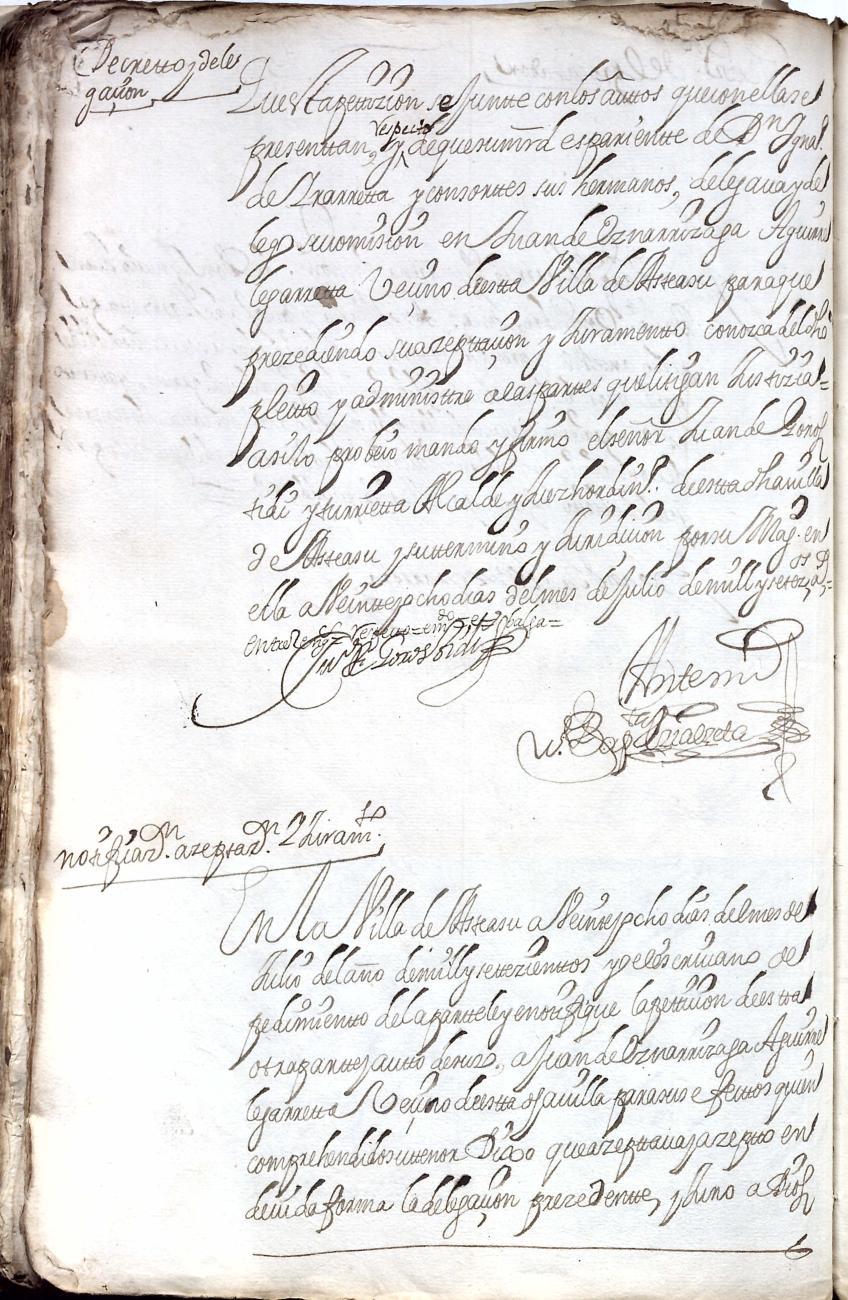 Decretto y dele
gaçion
Que esta petizion se juntte con los auttos que con ella se
presenttan, y respecto de que su mrd es pariente de Dn Ignaº
de Yrarretta y consorttes sus hermanos, delegava y de
legó su comision en Juan de Oznarrizaga Aguirre
lejarretta Veçino de estta Villa de Asteasu para que
prezediendo su azepttaçion y Juramentto conozca del dho
pleito y administre a las partes que litigan Justizia =
asi lo probeio mando y firmo el señor Juan de Goros
tidi y Yturrietta Alcalde y Juez hordinº de estta dha villa
de Asteasu y su termino y Juridicion por su Magd en
ella a Veintte y ocho dias del mes de Julio de mill y setezos as =
entre Rengs = respecto = emdo = et = valga =
Juan de Gorostidi
Antemi
notifiçazn azeptazn y Juramto
En La Villa de Asteasu a Veintte y ocho dias del mes de
Julio del año de mill y settezienttos yo el escrivano de
pedimiento de la parte ley e notifique la petiçion de estta
otra partte y autto de suso, a Juan de Oznarrizaga Aguirre
lejarretta Veçino de estta dha villa para sus efectos quien
comprehendido su ttenor Dixo que azepttava y azeptto en
devida forma la delegaçion prezedentte, y Juro a Dios